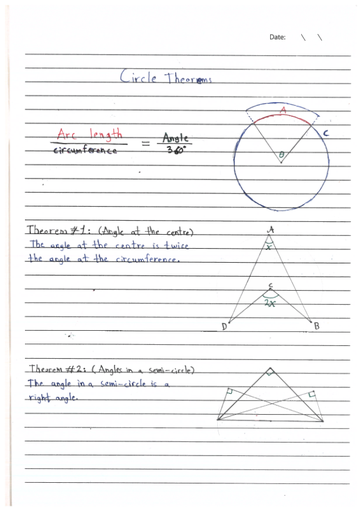 Date: \ \
Circle Theorems
Arc length
circumference
=
Angle
360°
A
C
θ
Theorem #1: (Angle at the centre)
The angle at the centre is twice
the angle at the circumference.
A
x
2x
D
B
Theorem #2: (Angles in a semi-circle)
The angle in a semi-circle is a
right angle.